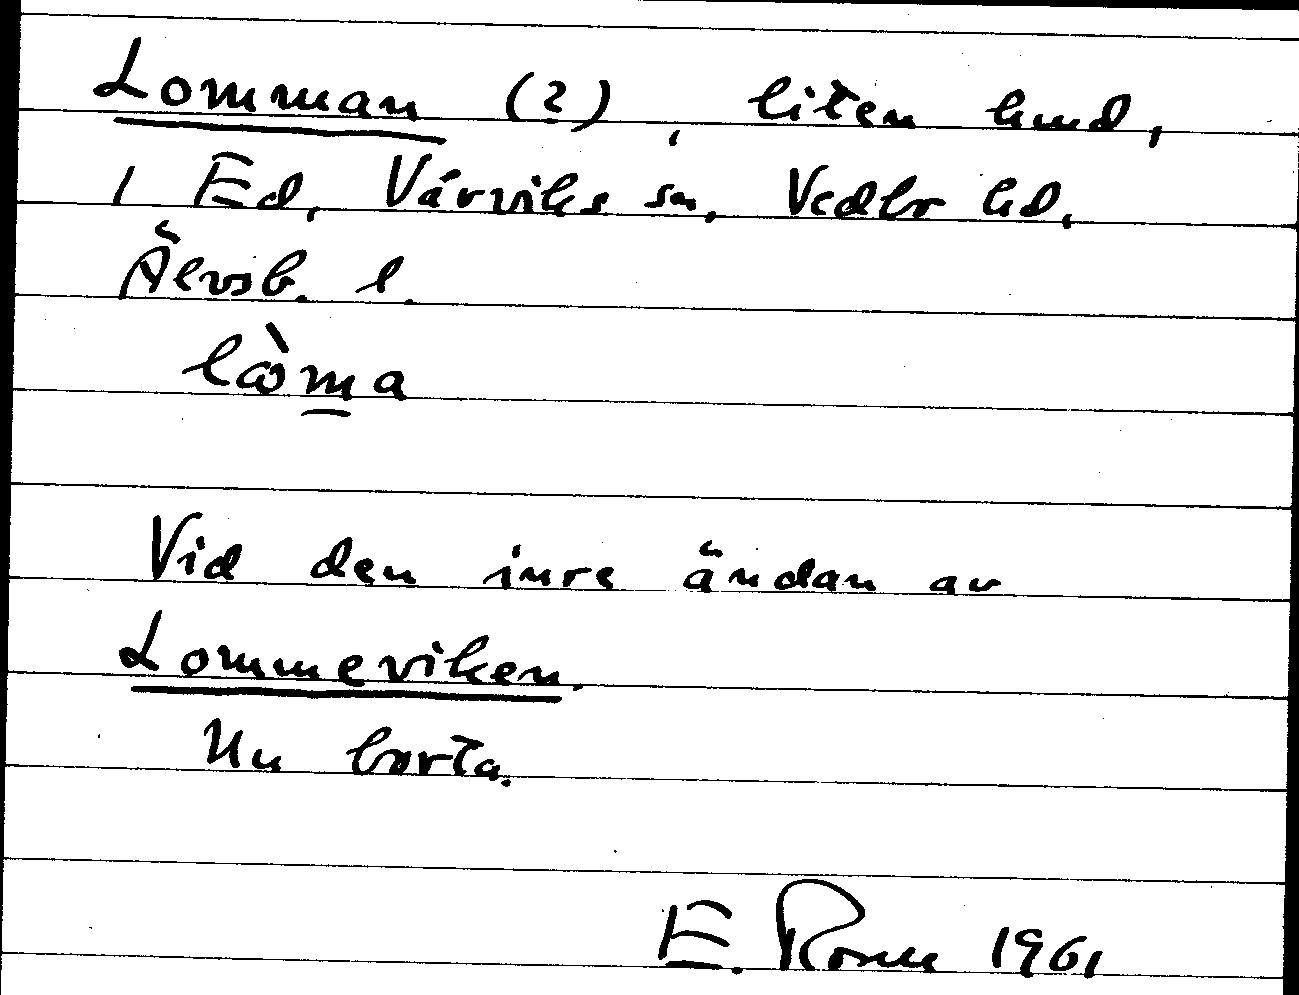 Lomman (?), liten hmd,
i Ed, Vårviks sn, Vedbo hd,
Älvsb. l.
lò̀ma
Vid den inre ändan av
Lommeviken.
Nu borta.
E. Rosell 1961